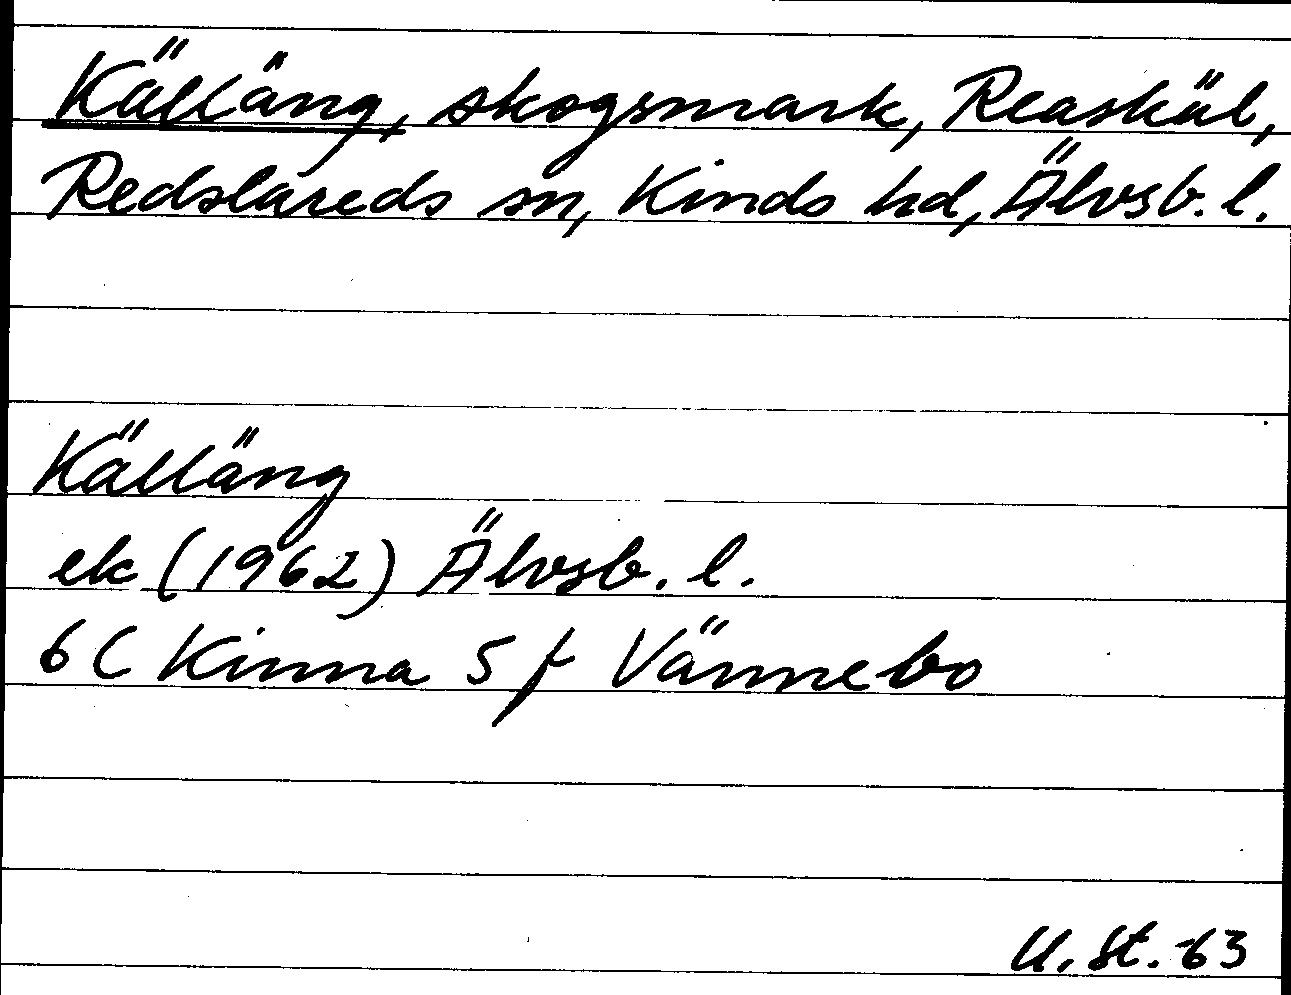 Källäng, skogsmark, Reaskäl,
Redslareds sn, Kinds hd, Älvsb. l.
Källäng
ek (1962) Älvsb. l.
6 C Kinna 5 f Vännebo
U. St. -63